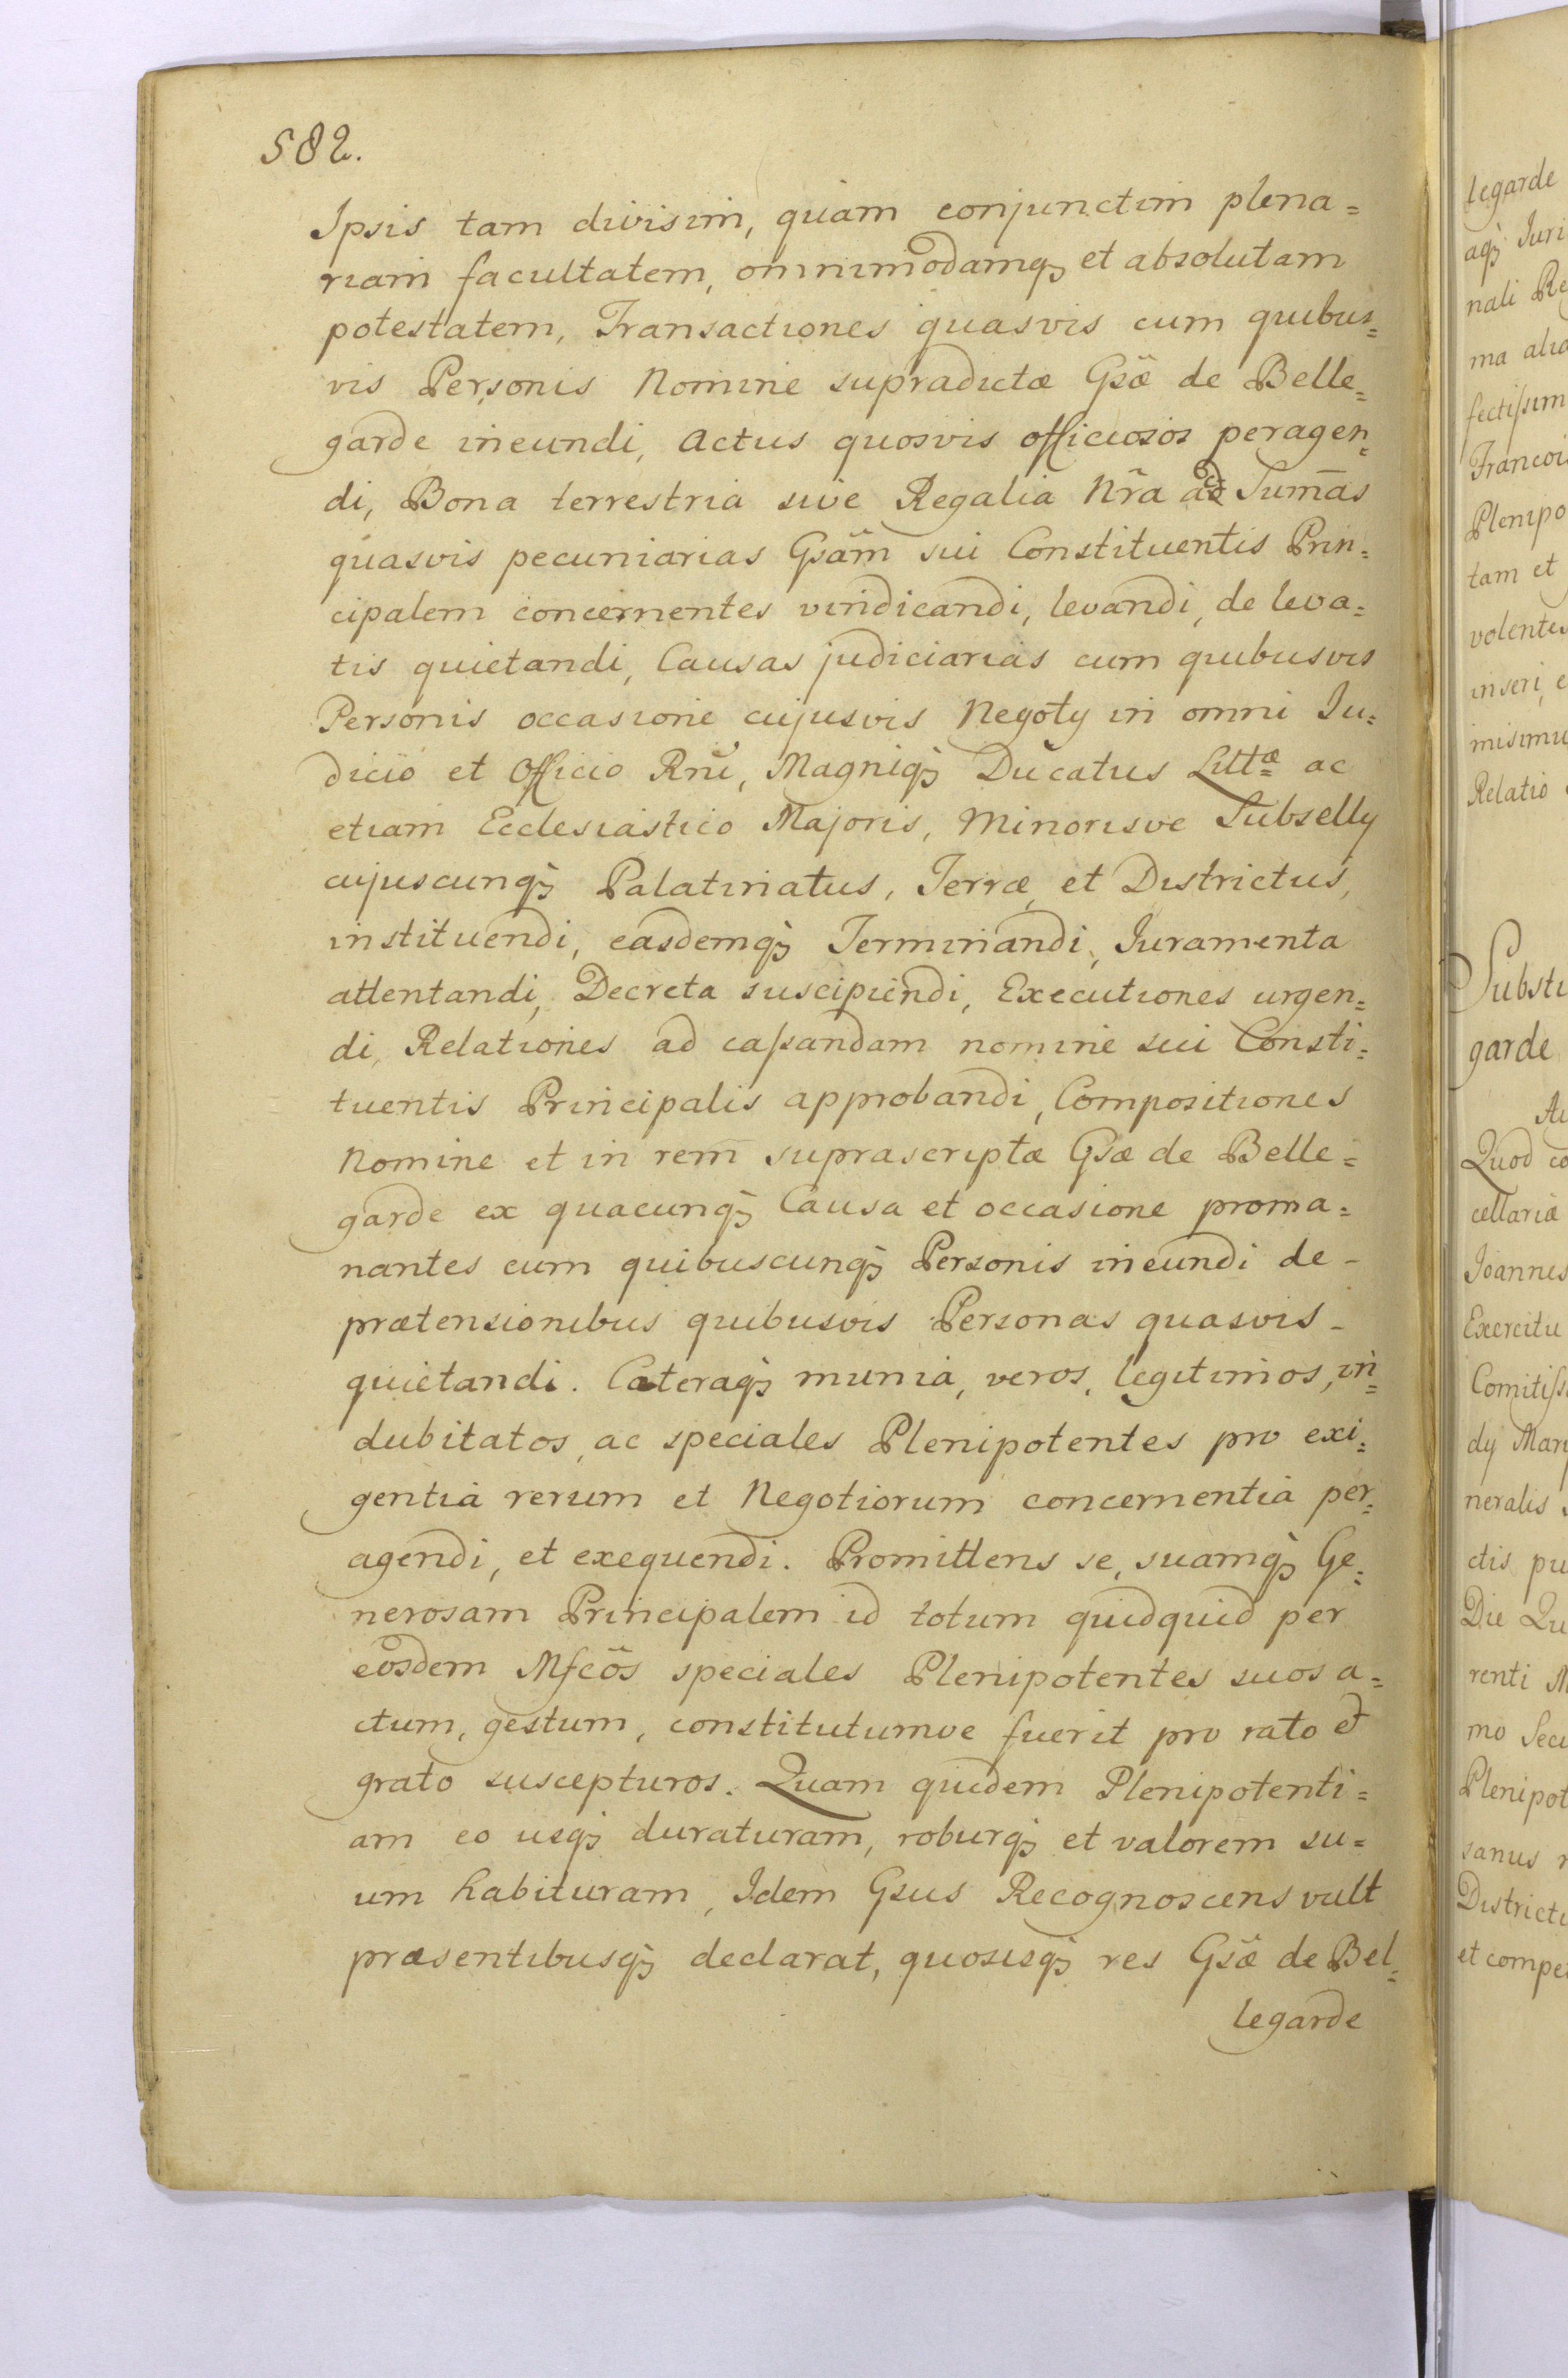 582.
Ipsis tam divisim, quam conjunctim plena=
riam facultatem, omnimodamq3 et absolutam
potestatem, Transactiones quasvis cum quibus=
vis Personis Nomine supradictæ Gsæ de Belle=
garde ineundi, actus quosvis officiosos peragen=
di, Bona terrestria sive Regalia Nr̃a Sum̃as
quasvis pecuniarias Gsãm sui Constituentis Prin=
cipalem concernentes vindicandi, levandi, de leva=
tis quietandi, Causas judiciarias cum quibusvis
Personis occasione cujusvis Negoty in omni Ju=
dicio et Officio Rni, Magniq3 Ducatus Littæ ac
etiam Ecclesiastico Majoris, Minorisve Subselly
cujuscunq3 Palatinatus, Terræ, et Districtus,
instituendi, easdemq3 Terminandi, Juramenta
attentandi, Decreta suscipiendi, Executiones urgen=
di, Relationes ad caſsandam nomine sui Consti=
tuentis Principalis approbandi, Compositiones
Nomine et in rem suprascriptæ Gsæ de Belle=
garde ex quacunq3 Causa et occasione proma=
nantes cum quibuscunq3 Personis ineundi de-
prætensionibus quibusvis Personas quasvis-
quietandi. Cæteraq3 munia, veros, legitimos, in=
dubitatos, ac speciales Plenipotentes pro exi=
gentia rerum et Negotiorum concernentia per=
agendi, et exequendi. Promittens se, suamq3 Ge=
nerosam Principalem id totum quidquid per
eosdem Mfcõs speciales Plenipotentes suos a=
ctum, gestum, constitutumve fuerit pro rato et
grato suscepturos. Quam quidem Plenipotenti=
am eo usq3 duraturam, roburq3 et valorem su=
um habituram, Idem Gsus Recognoscens vult
præsentibusq3 declarat, quousq3 res Gsæ de Bel=
legarde
legarde
aq3 Juri
nali Re
ma alia
fectiſsim
Francois
Plenipo
tam et
volentes
inseri, e
misimu
Relatio
Substi
garde
Quod co
cellariæ
Joannes
Exercitu
Comitiſs
dy Mar
neralis
ctis pu
Die Qu
renti M
mo Secu
Plenipot
sanus
Districtu
et compe